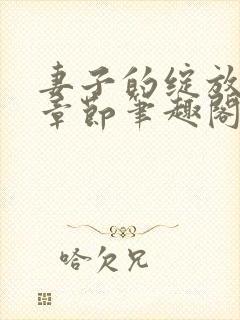 妻子的绽放
章节笔趣阁
哈欠兄